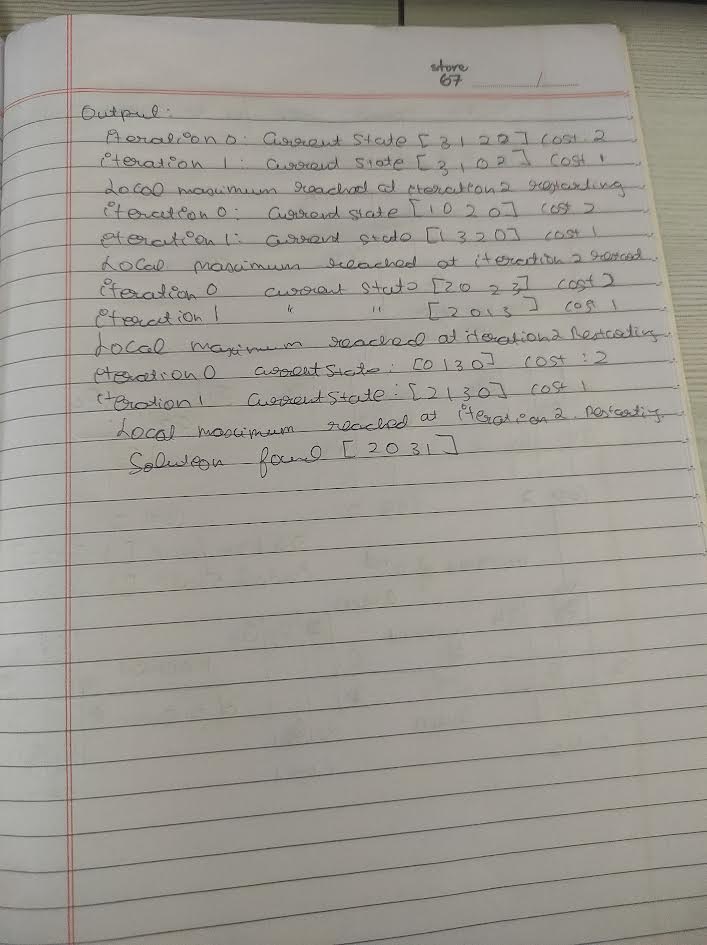 store
67
Output:
Iteration 0: Current State [3 1 2 2] cost 2
iteration 1: Current State [3, 0 2] cost 1
Local maximum reached at iteration 2 restarting
iteration 0: Current state [1 0 2 0] cost 2
iteration 1: current state [1 3 2 0] cost 1
Local maximum reached at iteration 2 restard
iteration 0 current State [2 0 2 3] cost 2
iteration 1 " " [2 0 1 3] cost 1
Local maximum reached at iteration 2 Restarting
iteration 0 current State: [0 1 3 0] cost: 2
iteration 1 Current State: [2 1 3 0] cost 1
Local maximum reached at iteration 2. Restarting
Solution found [2 0 3 1]